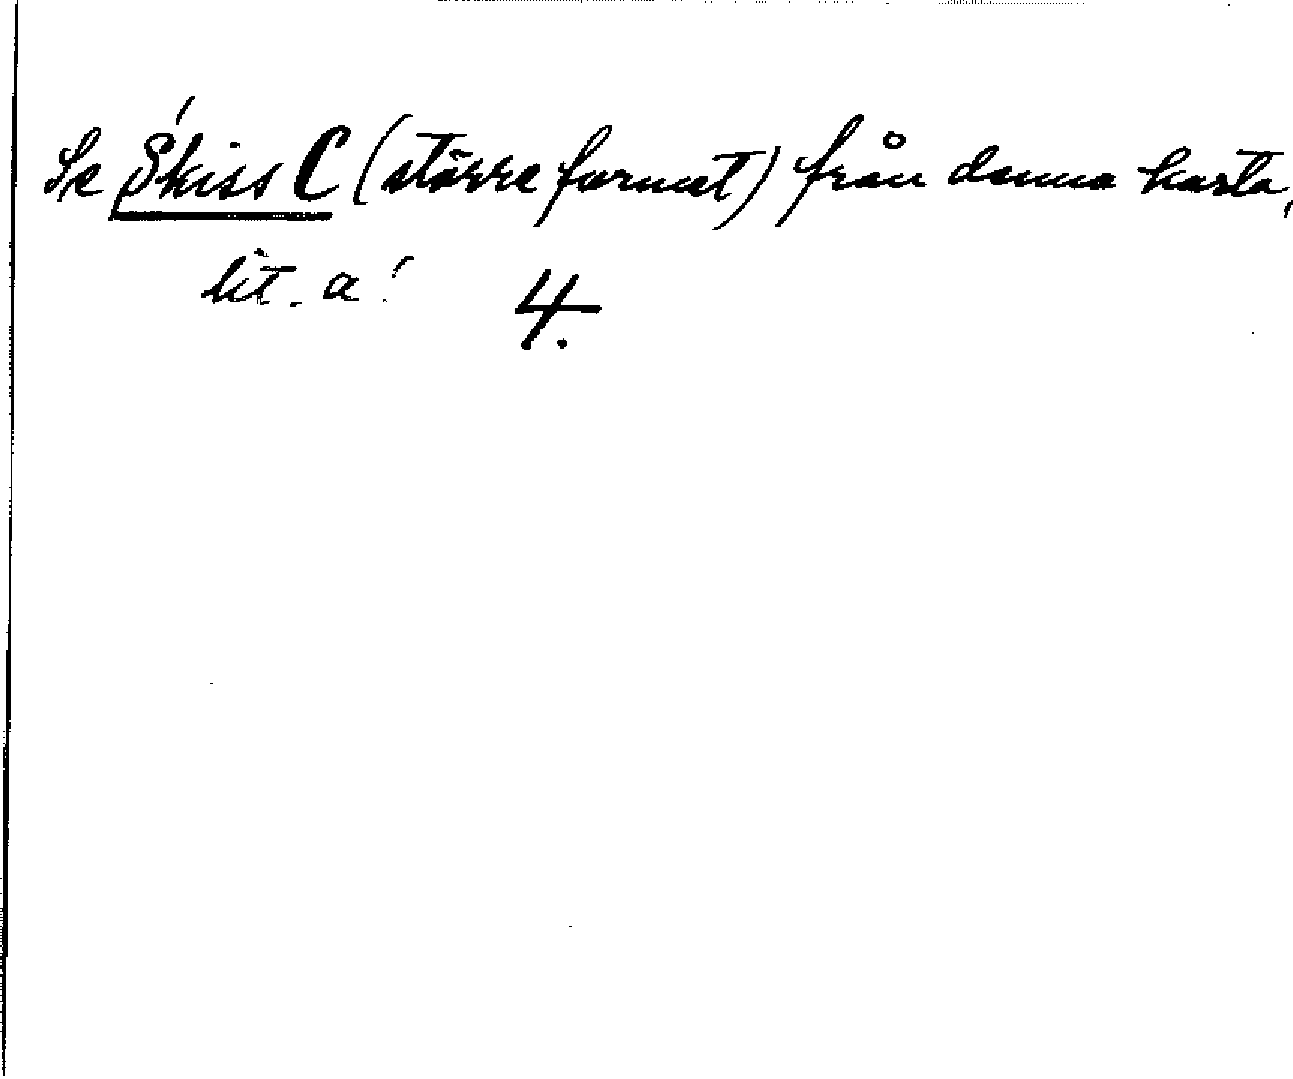 Se Skiss C (större format) från denna karta,
lit. a! 4.